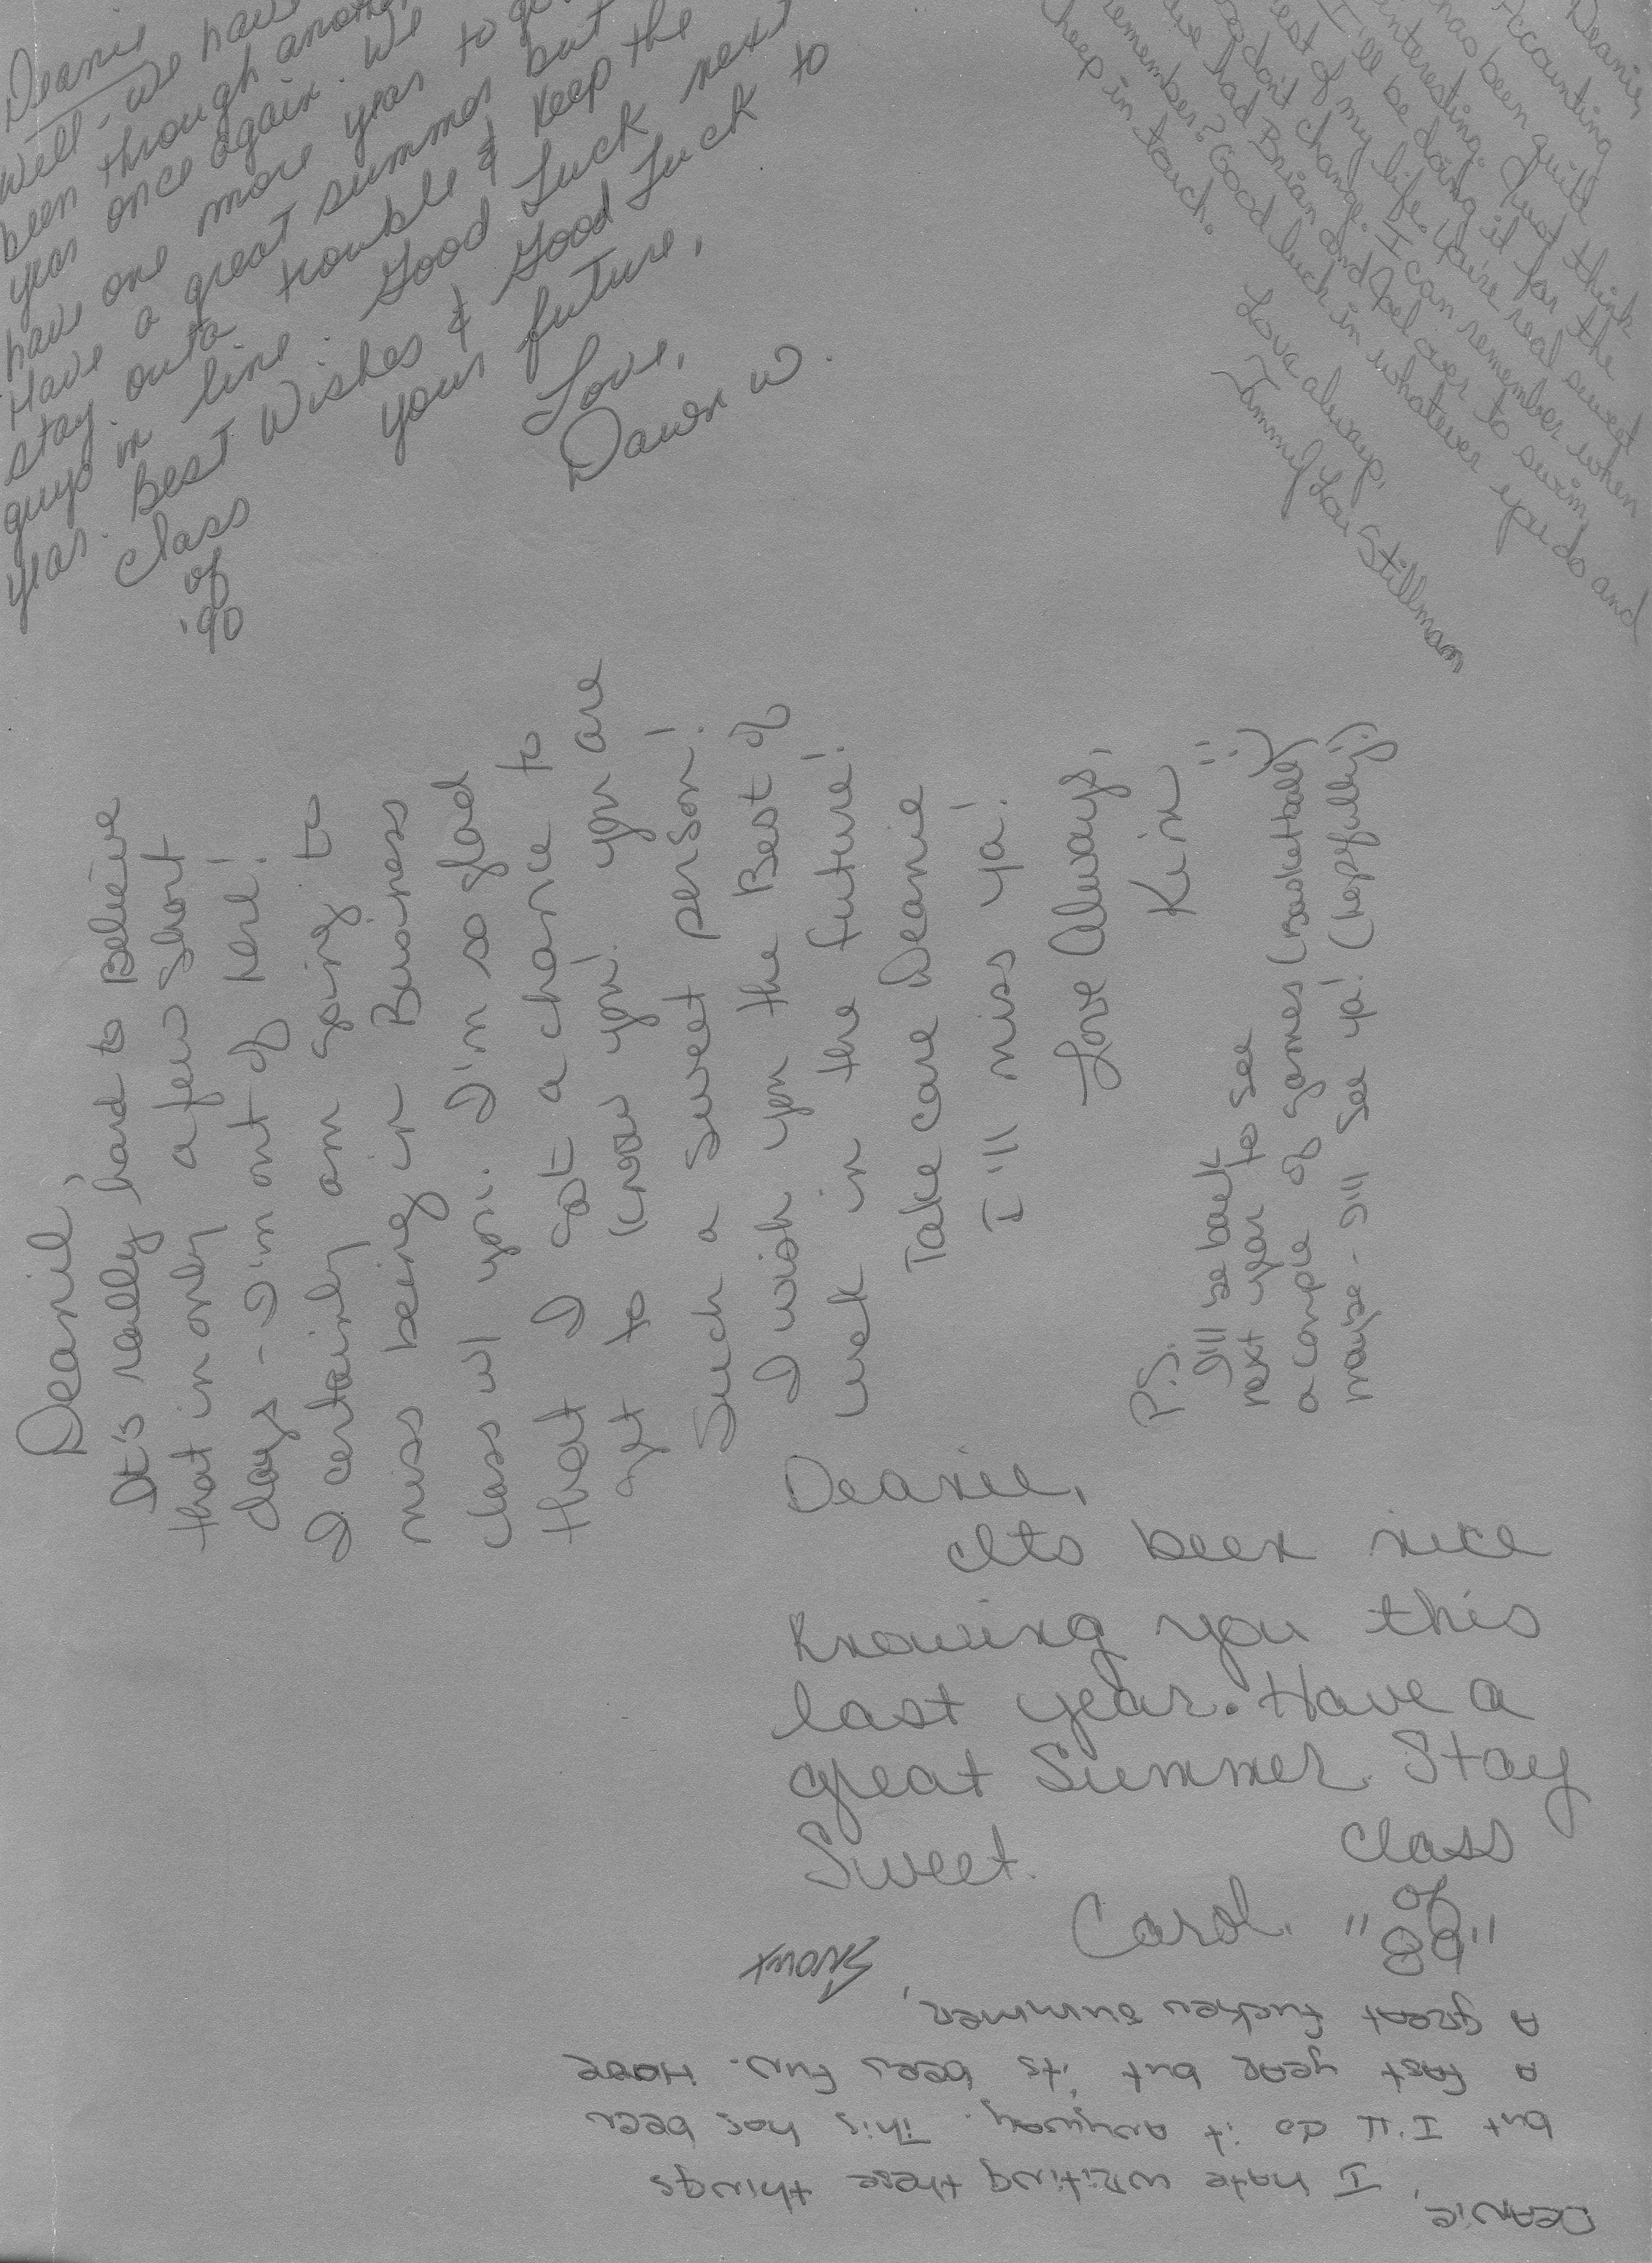 Deanie
Well - we have
been through another
year once again. We
have one more year to go
Have a great summer but
stay outa trouble & keep the
guys in line. Good Luck next
year. Best Wishes & Good Luck to
your future,
Love,
Dawn W.
Class
of
'90
Deanie,
Accounting
has been quite
interesting. Just think
I'll be doing it for the
rest of my life. You're real sweet
so don't change. I can remember when
we had Brian and Joel over to swim,
remember? Good luck in whatever you do and
keep in touch.
Love always,
Tammy Lou Stillman
Deanie,
It's really hard to Believe
that in only a few short
days - I'm out of here!
I certainly am going to
miss being in Business
class w/ you. I'm so glad
that I got a chance to
get to know you! You are
Such a sweet person!
I wish you the Best of
luck in the future!
Take care Deanie
I'll miss ya!
Love Always,
Kim :)
P.S.
I'll be back
next year to see
a couple of games (Basketball)
maybe - I'll see ya! (hopfully) :)
Deanie,
Its been nice
knowing you this
last year. Have a
great Summer. Stay
Sweet.
Carol.
Class
of
"89"
Deanie,
I hate writing these things
but I'll do it anyway. This has been
a fast year but its been fun. Have
a great fucken summer,